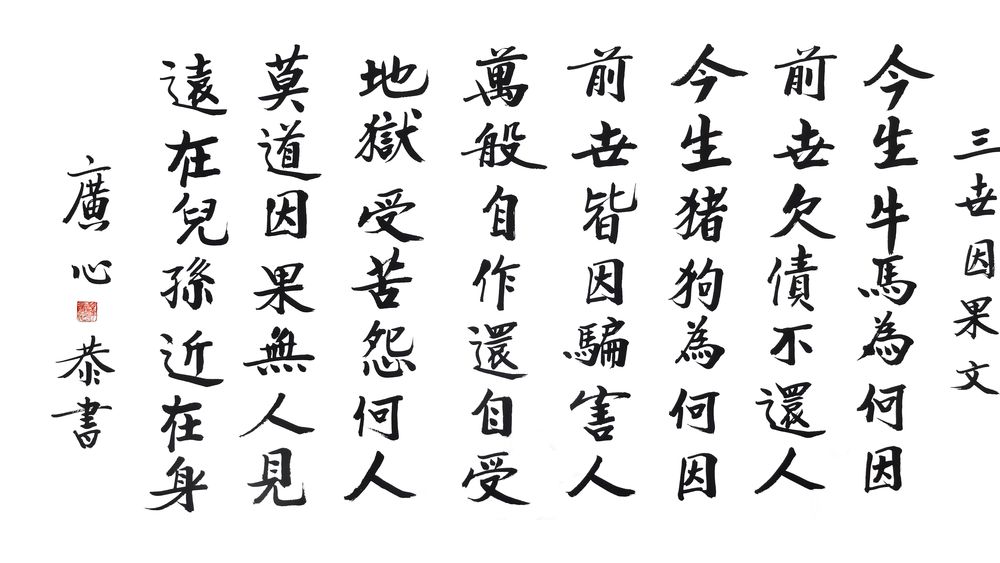 三世因果文
今生牛馬為何因
前世欠債不還人
今生猪狗為何因
前世皆因騙害人
萬般自作還自受
地獄受苦怨何人
莫道因果無人見
遠在兒孫近在身
廣心恭書